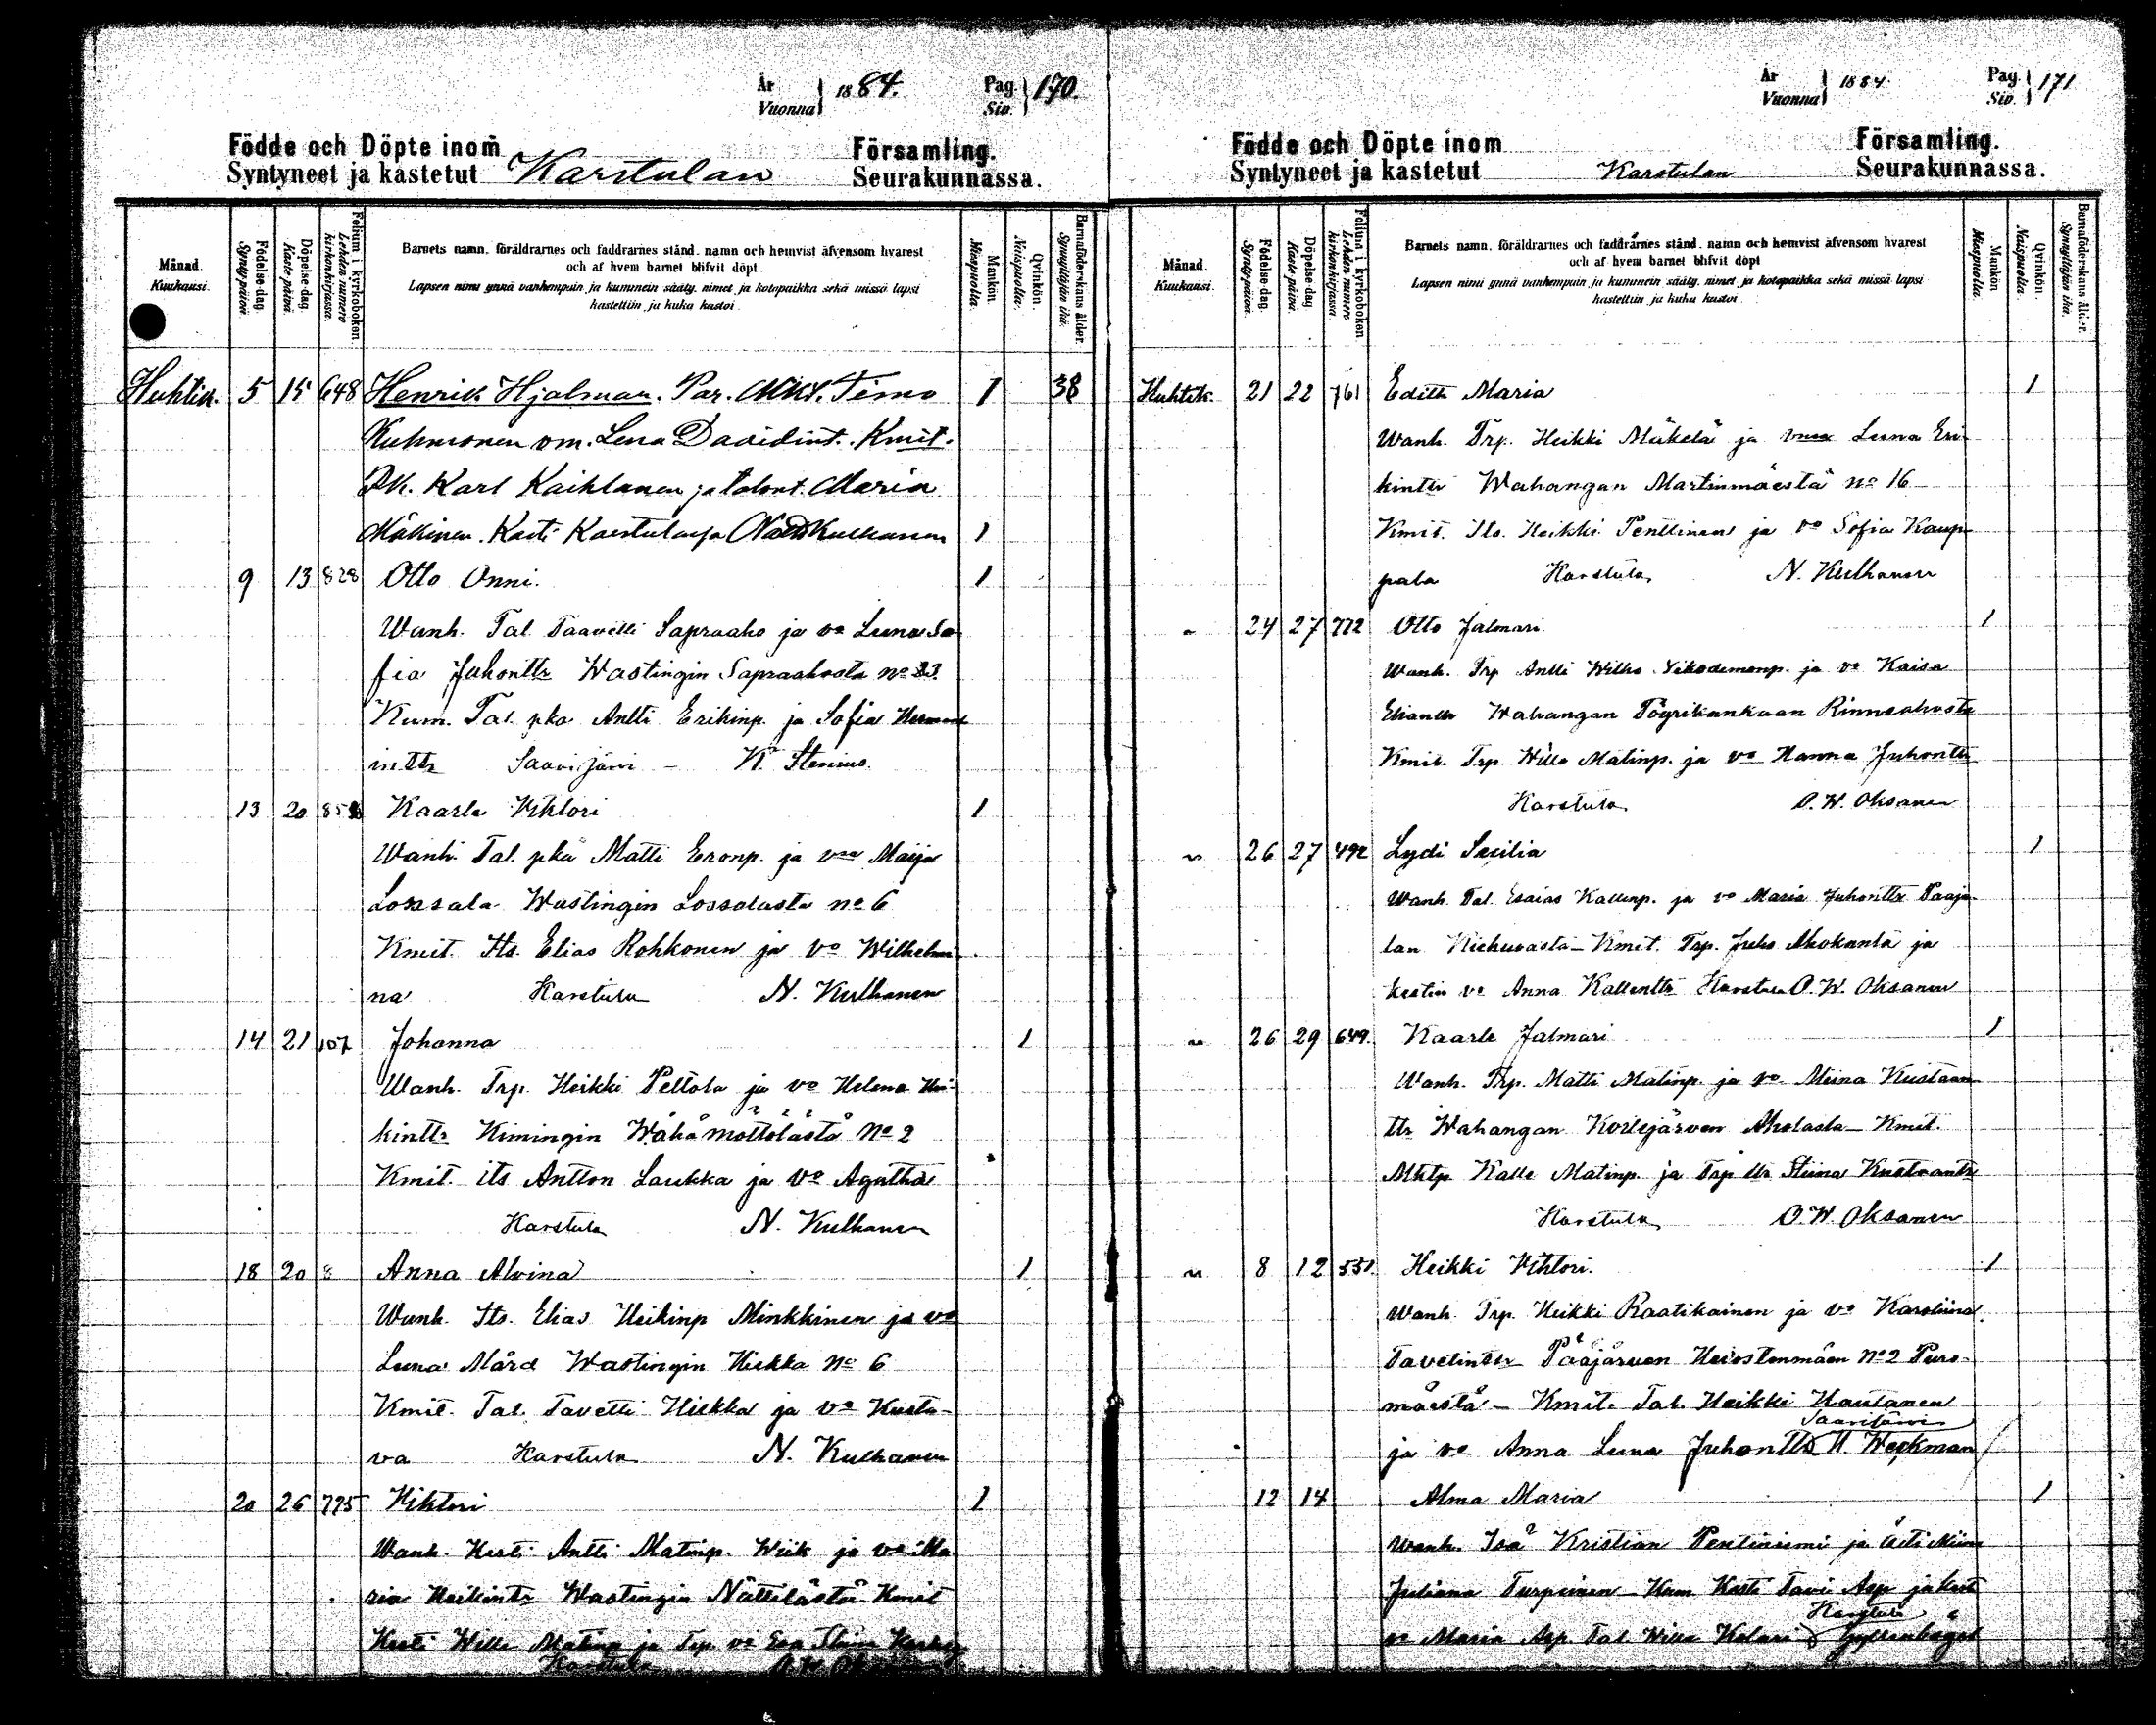 År
Vuonna 1884.
Pag.
Siv. 170.
Födde och Döpte inom
Syntyneet ja kastetut Karstulan
Församling.
Seurakunnassa.
Månad.
Kuukausi.
Födelse-dag.
Syntypäivä.
Döpelse-dag.
Kaste-päivä.
Folium i kyrkoboken.
Lehden numero kirkonkirjassa.
Barnets namn, föräldrarnes och faddrarnes stånd, namn och hemvist äfvensom hvarest
och af hvem barnet blifvit döpt.
Lapsen nimi ynnä vanhempain ja kummein sääty, nimet ja kotopaikka sekä missä lapsi
kastettiin ja kuka kastoi.
Mankön.
Miespuolia.
Qvinkön.
Naispuolia.
Barnaföderskans ålder.
Synnyttäjän ikä.
Huhtik. 5 15 648 Henrik Hjalmar. Par. Mks. Timo 1 38
Kuhmonen vm. Lena Davidint. Kmit.
Karl Kaihlanen ja talont. Maria
Mäkinen. Kasti Karstulassa Kulhanen 1
9 13 828 Otto Onni. 1
Wanh. Tal. Taavetti Sapraaho ja vo Leena So
fia Juhontr Wastingin Sapraahosta No 23.
Kum. Tal. pka Antti Erikinp. ja Sofia Herman
intr Saarijärvi - K. Stenius.
13 20 Kaarle Vihtori 1
Wanh. Tal. pka Matti Eronp. ja vmo Maija
Lossala Wastingin Lossalasta No 6
Kmit. Its. Elias Rohkonen ja vo Wilhelmi
na Karstula N. Kulhanen
14 21 107 Johanna 1
Wanh. Trp. Heikki Peltola ja vo Helena Hei-
kintr Kimingin Wähämöttölästä No 2
Kmit. its Antton Laukka ja vo Agatha
Karstula N. Kulhanen
18 20 8 Anna Alvina 1
Wanh. Its. Elias Heikinp Minkkinen ja vo
Leena Mård Wastingin Hiekka No 6
Kmit. Tal. Tavetti Hiekka ja vo Kusta-
va Karstula N. Kulhanen
20 26 775 Vihtori 1
Wanh. Kesti Antti Matinp. Wiik ja vo Ma
ria Heikintr Wastingin Nättilästä Kmit
Kesti Wille Matinp ja Trp. vo Eva Stina
Karstula
År
Vuonna 1884
Pag.
Siv. 171
Födde och Döpte inom
Syntyneet ja kastetut Karstulan
Församling.
Seurakunnassa.
Månad.
Kuukausi.
Födelse-dag.
Syntypäivä.
Döpelse-dag.
Kaste-päivä.
Folium i kyrkoboken.
Lehden numero kirkonkirjassa.
Barnets namn, föräldrarnes och faddrarnes stånd, namn och hemvist äfvensom hvarest
och af hvem barnet blifvit döpt
Lapsen nimi ynnä vanhempain ja kummein sääty, nimet ja kotopaikka sekä missä lapsi
kastettiin ja kuka kastoi.
Mankön.
Miespuolia.
Qvinkön.
Naispuolia.
Barnaföderskans ålder.
Synnyttäjän ikä.
Huhtik. 21 22 761 Edith Maria 1
Wanh. Trp. Heikki Mäkelä ja Leena Eri
kintr Wahangan Martinmäestä No 16
Kmit. Its. Heikki Penttinen ja vo Sofia Kaup
pala Karstula N. Kulhanen
" 24 27 772 Otto Jalmari 1
Wanh. Trp Antti Wilho Nikodemonp. ja vo Kaisa
Eliantr Wahangan Töyrikankaan Rinneahosta
Kmit. Trp. Wille Matinp. ja vo Hanna Juhontr
Karstula O. W. Oksanen
" 26 27 492 Lydi Secilia 1
Wanh. Tal. Esaias Kallenp. ja vo Maria Juhontr Paaja-
lan Kiehuvasta - Kmit. Trp. Juho Ahokanta ja
kestin vo Anna Kallentr Karstula O. W. Oksanen
" 26 29 649. Kaarle Jalmari 1
Wanh. Trp. Matti Matinp. ja vo. Miina Kustaan
tr Wahangan Koilejärven Aholasta - Kmit.
Mktp Kalle Matinp. ja Trp tr Stiina Kustaantr
Karstula O. W. Oksanen
" 8 12 551. Heikki Vihtori. 1
Wanh. Trp. Heikki Raatikainen ja vo Karoliina
Tavetintr Pääjärven Heirostenmäen No 2 Puro-
mäestä - Kmit. Tal. Heikki Hautanen
Saarijärvi
ja vo Anna Leena Juhontr H. Weckman
12 14 Alma Maria 1
Wanh. Isä Kristian Pentiniemi ja äiti Miina
Juliana Turpeinen - Kum Kesti Tavi Asp ja kest
Karstula
vo Maria Asp. Tal. Wille Kolari